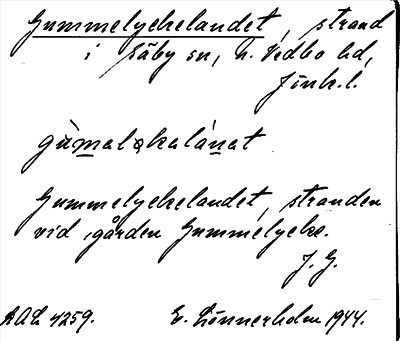 Gummelyckelandet, strand
i Säby sn, N. Vedbo hd,
Jönk. l.
gùmaləkalánat
Gummelyckelandet, stranden
vid gården Gummelycke.
J. G.
AAL 4259. E. Lönnerholm 1944.